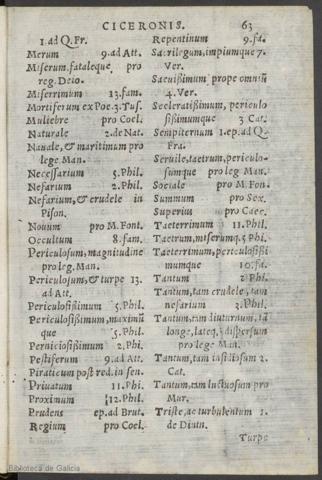 CICERONIS. 63
1. ad Q. Fr.
Merum 9. ad Att.
Miserum, fataleque pro
reg. Deio.
Miserrimum 13. fam.
Mortiferum ex Poe. 3. Tus.
Muliebre pro Coel.
Naturale 2. de Nat.
Nauale, & maritimum pro
lege Man.
Necessarium 5. Phil.
Nefarium 2. Phil.
Nefarium, & crudele in
Pison.
Nouum pro M. Font.
Occultum 8. fam.
Periculosum, magnitudine
pro leg. Man.
Periculosum, & turpe 13.
ad Att.
Periculosißimum 5. Phil.
Periculosißimum, maximũ
que 5. Phil.
Perniciosißimum 2. Phil.
Pestiferum 9. ad Att.
Piraticum post red. in sen.
Priuatum 11. Phi.
Proximum 12. Phil.
Prudens ep. ad Brut.
Regium pro Coel.
Repentinum 9. fa.
Sacrilegum, impiumque 7.
Ver.
Sæuißimum prope omniũ
4. Ver.
Sceleratißimum, periculo
sißimumque 3 Cat.
Sempiternum 1. ep. ad Q.
Fra.
Seruile, taetrum, periculo-
sumque pro leg Man.
Sociale pro M. Fon.
Summum pro Sex.
Superius pro Caec.
Taeterrimum 11. Phil.
Taetrum, miserumq. 5 Phi.
Taeterrimum, periculosißi
mumque 10. fa.
Tantum 2 Phil.
Tantum, tam crudele, tam
nefarium 3. Phil.
Tantum, tam diuturnum, tã
longe, lateq; dispersum
pro lege Man.
Tantum, tam insidiosum 2.
Cat.
Tantum, tam luctuosum pro
Mur.
Triste, ac turbulentum 1.
de Diuin.
Turpe
Biblioteca de Galicia